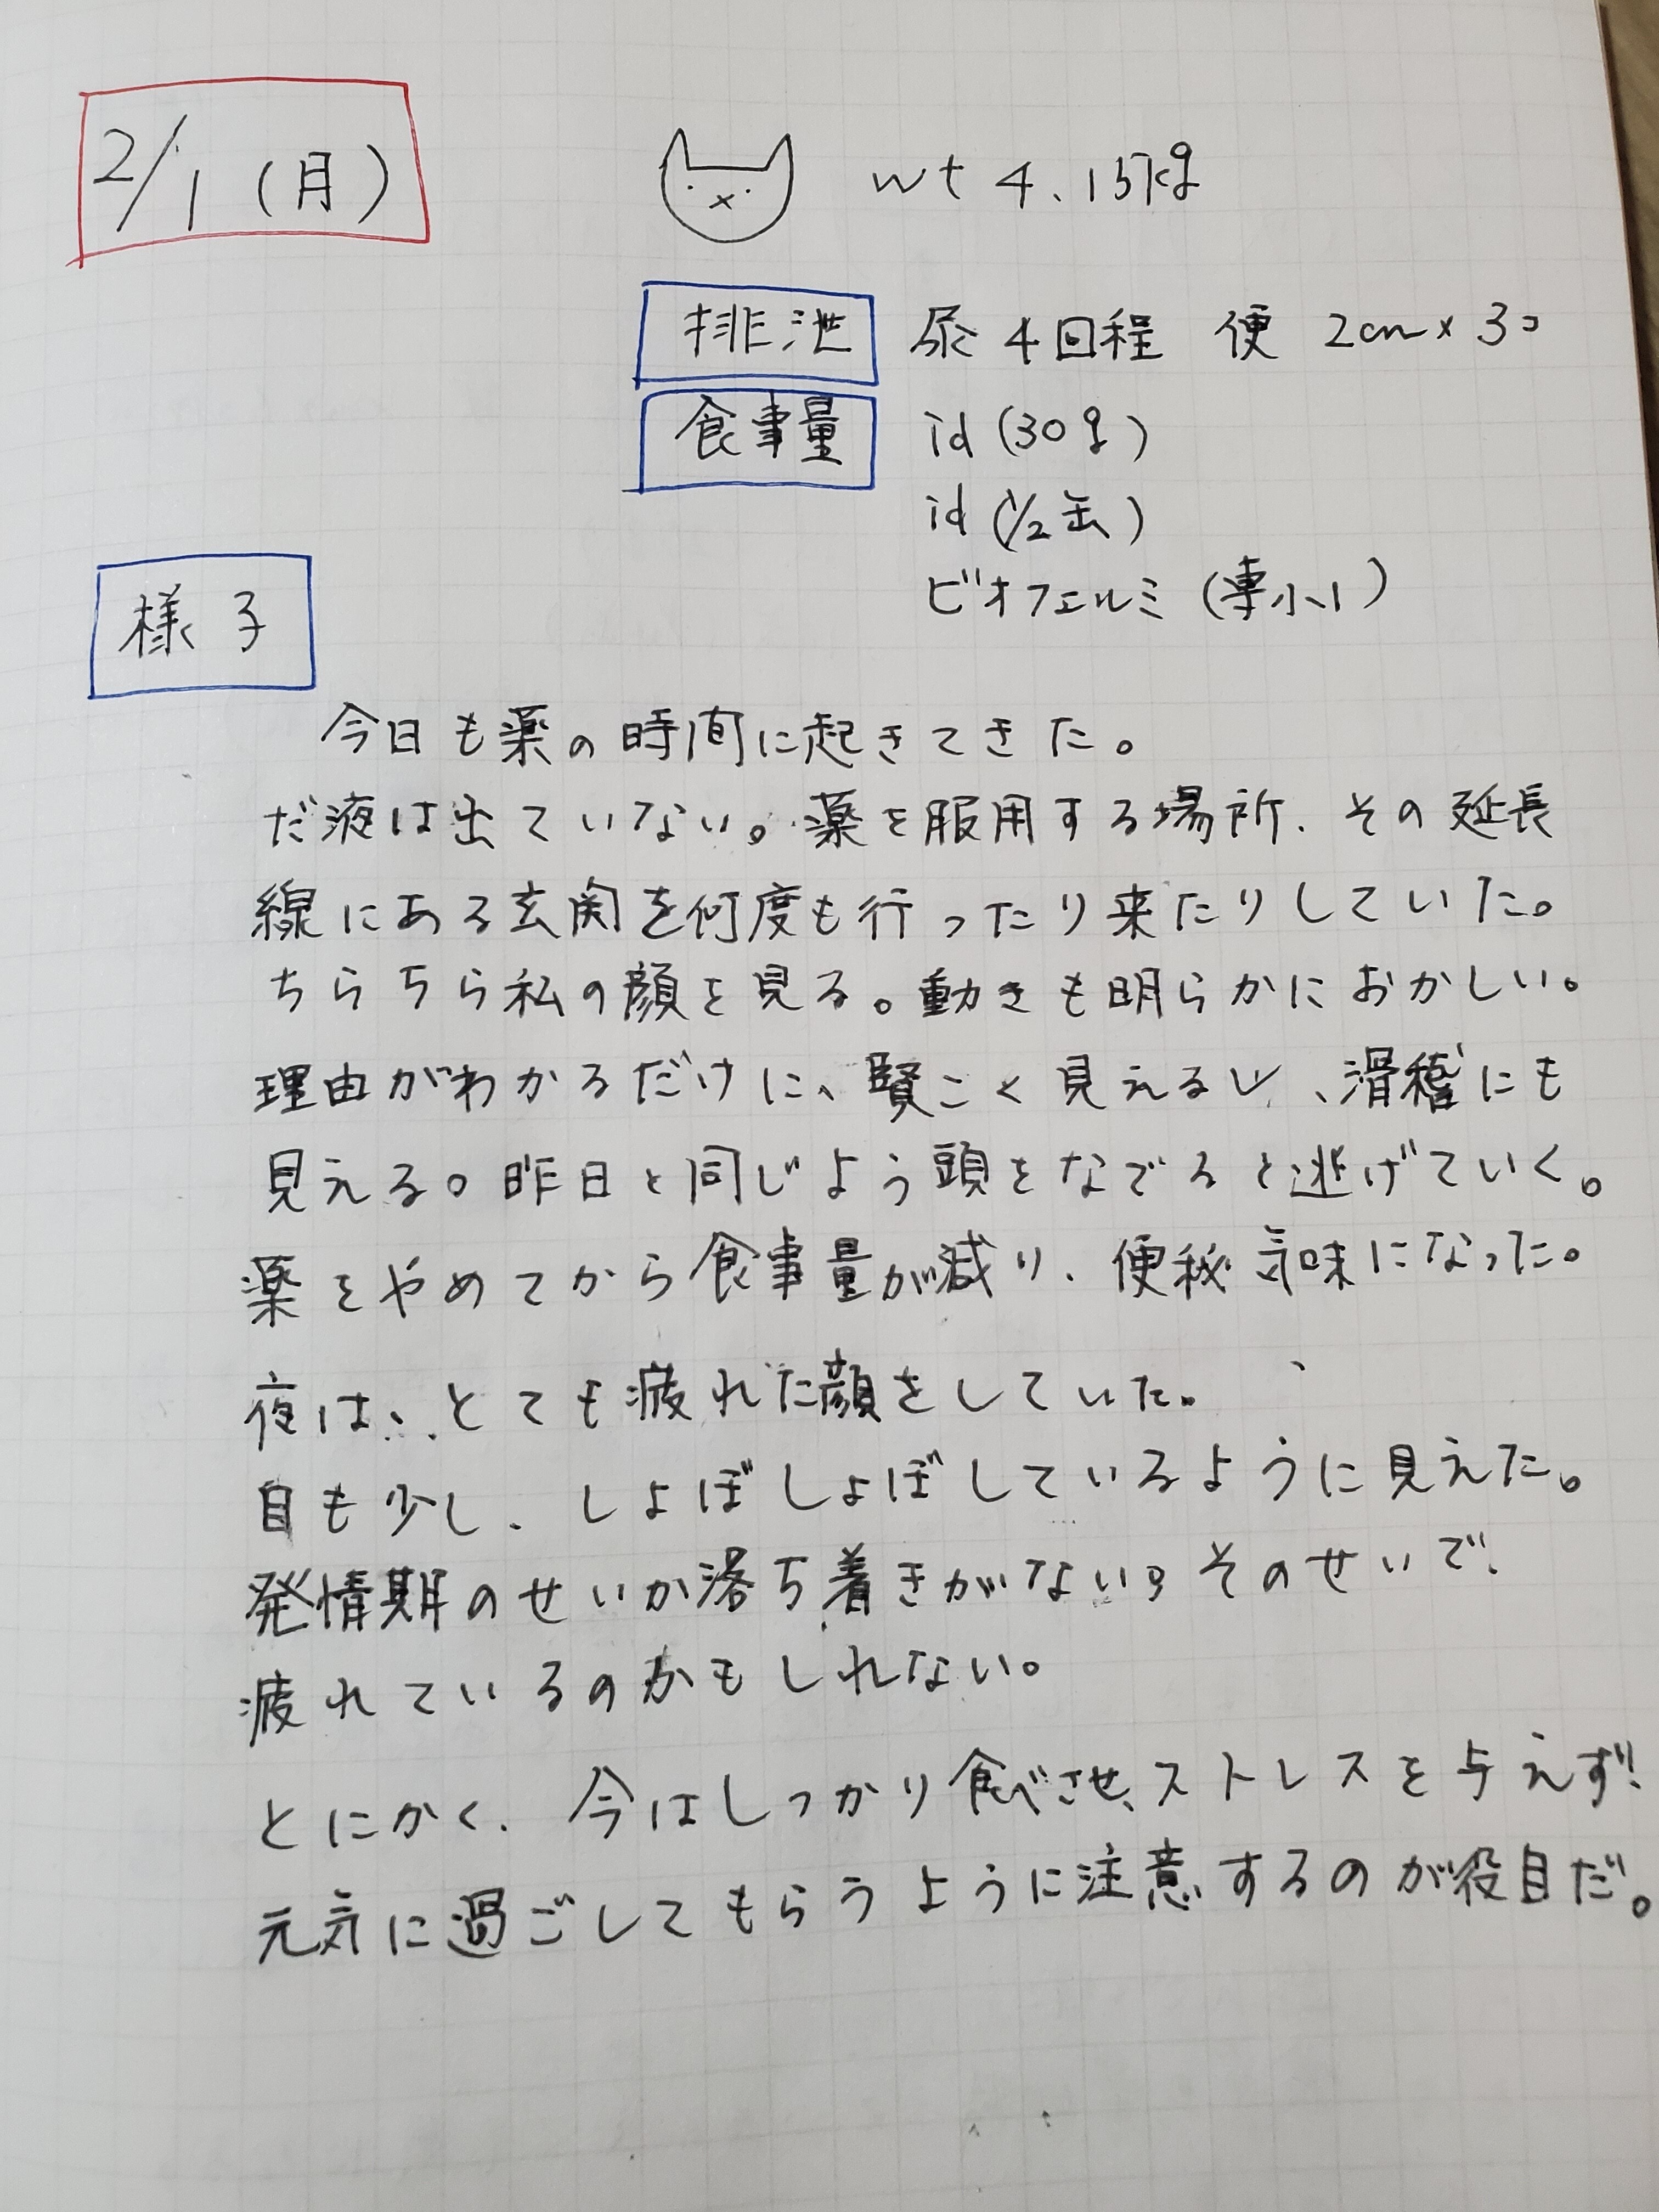 2/1(月)
wt 4.15kg
排泄 尿 4回程 便 2cm×3コ
食事量 id(30g)
id(1/2缶)
ビオフェルミ(専小1)
様子
今日も薬の時間に起きてきた。
だ液は出ていない。薬を服用する場所、その延長
線にある玄関を何度も行ったり来たりしていた。
ちらちら私の顔を見る。動きも明らかにおかしい。
理由がわかるだけに、賢こく見えるし、滑稽にも
見える。昨日と同じよう頭をなでると逃げていく。
薬をやめてから食事量が減り、便秘気味になった。
夜は、とても疲れた顔をしていた。
目も少し、しょぼしょぼしているように見えた。
発情期のせいか落ち着きがない。そのせいで、
疲れているのかもしれない。
とにかく、今はしっかり食べさせ、ストレスを与えず!
元気に過ごしてもらうように注意するのが役目だ。